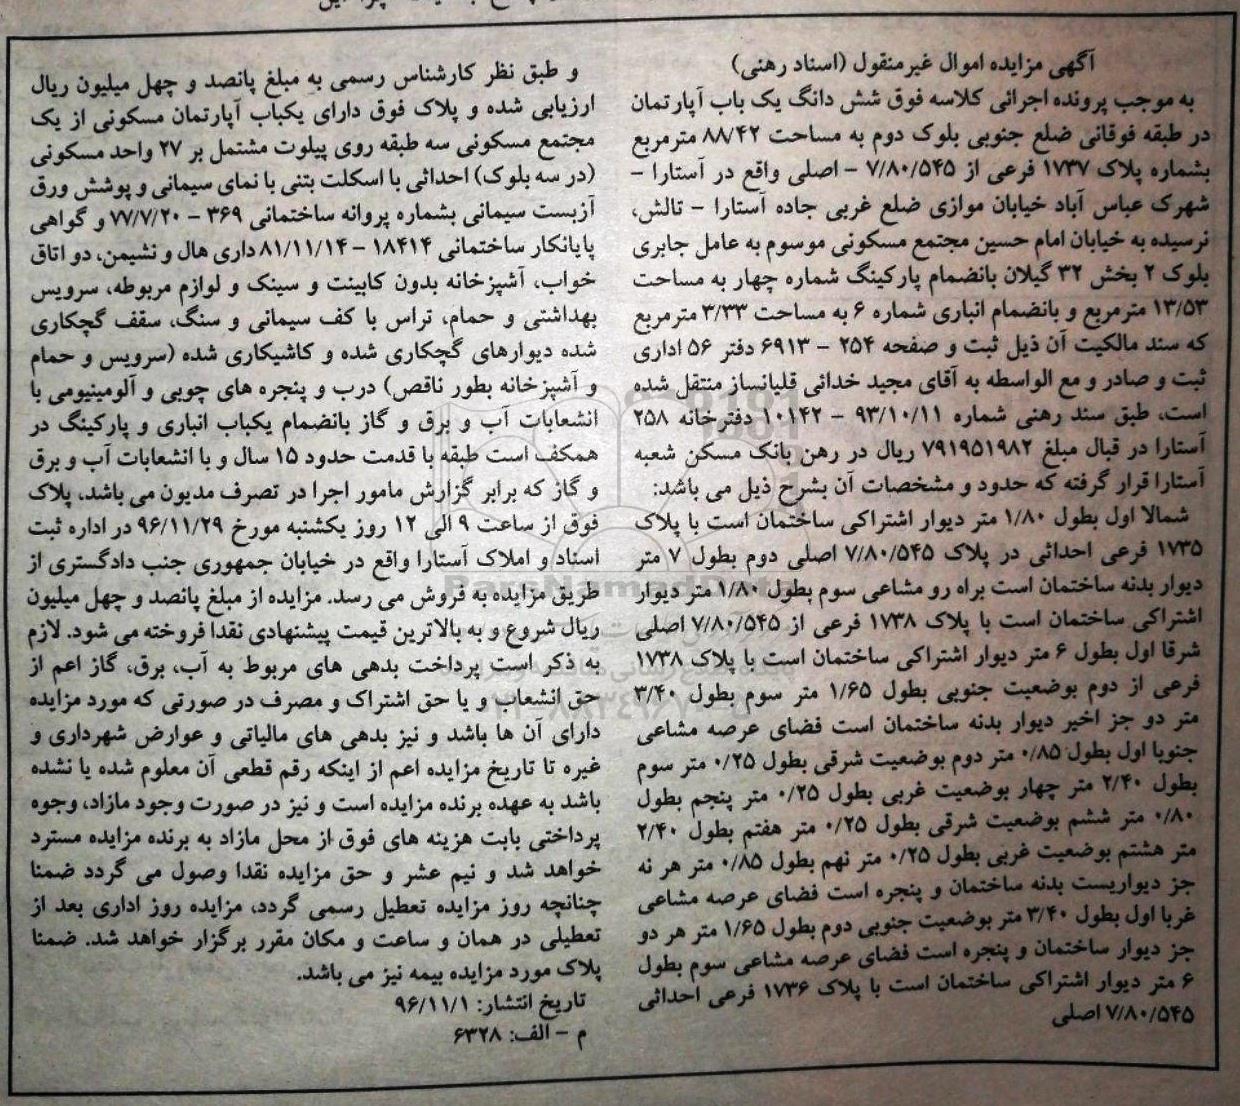 آگهی مزایده اموال غیرمنقول (اسناد رهنی)
به موجب پرونده اجرائی کلاسه فوق شش دانگ یک باب آپارتمان
در طبقه فوقانی ضلع جنوبی بلوک دوم به مساحت ۸۸/۴۲ مترمربع
بشماره پلاک ۱۷۳۷ فرعی از ۷/۸۰/۵۴۵ – اصلی واقع در آستارا –
شهرک عباس آباد خیابان موازی ضلع غربی جاده آستارا – تالش،
نرسیده به خیابان امام حسین مجتمع مسکونی موسوم به عامل جابری
بلوک ۲ بخش ۳۲ گیلان بانضمام پارکینگ شماره چهار به مساحت
۱۳/۵۳ مترمربع و بانضمام انباری شماره ۶ به مساحت ۳/۳۳ مترمربع
که سند مالکیت آن ذیل ثبت و صفحه ۲۵۴ – ۶۹۱۳ دفتر ۵۶ اداری
ثبت و صادر و مع الواسطه به آقای مجید خدائی قلیانساز منتقل شده
است، طبق سند رهنی شماره ۹۳/۱۰/۱۱ – ۱۰۱۴۲ دفترخانه ۲۵۸
آستارا در قبال مبلغ ۷۹۱۹۵۱۹۸۲ ریال در رهن بانک مسکن شعبه
آستارا قرار گرفته که حدود و مشخصات آن بشرح ذیل می باشد:
شمالا اول بطول ۱/۸۰ متر دیوار اشتراکی ساختمان است با پلاک
۱۷۳۵ فرعی احداثی در پلاک ۷/۸۰/۵۴۵ اصلی دوم بطول ۷ متر
دیوار بدنه ساختمان است براه رو مشاعی سوم بطول ۱/۸۰ متر دیوار
اشتراکی ساختمان است با پلاک ۱۷۳۸ فرعی از ۷/۸۰/۵۴۵ اصلی
شرقا اول بطول ۶ متر دیوار اشتراکی ساختمان است با پلاک ۱۷۳۸
فرعی از دوم بوضعیت جنوبی بطول ۱/۶۵ متر سوم بطول ۳/۴۰
متر دو جز اخیر دیوار بدنه ساختمان است فضای عرصه مشاعی
جنوبا اول بطول ۰/۸۵ متر دوم بوضعیت شرقی بطول ۰/۲۵ متر سوم
بطول ۲/۴۰ متر چهار بوضعیت غربی بطول ۰/۲۵ متر پنجم بطول
۰/۸۰ متر ششم بوضعیت شرقی بطول ۰/۲۵ متر هفتم بطول ۲/۴۰
متر هشتم بوضعیت غربی بطول ۰/۲۵ متر نهم بطول ۰/۸۵ متر هر نه
جز دیواریست بدنه ساختمان و پنجره است فضای عرصه مشاعی
غربا اول بطول ۳/۴۰ متر بوضعیت جنوبی دوم بطول ۱/۶۵ متر هر دو
جز دیوار ساختمان و پنجره است فضای عرصه مشاعی سوم بطول
۶ متر دیوار اشتراکی ساختمان است با پلاک ۱۷۳۶ فرعی احداثی
۷/۸۰/۵۴۵ اصلی
و طبق نظر کارشناس رسمی به مبلغ پانصد و چهل میلیون ریال
ارزیابی شده و پلاک فوق دارای یکباب آپارتمان مسکونی از یک
مجتمع مسکونی سه طبقه روی پیلوت مشتمل بر ۲۷ واحد مسکونی
(در سه بلوک) احداثی با اسکلت بتنی با نمای سیمانی و پوشش ورق
آزبست سیمانی بشماره پروانه ساختمانی ۳۶۹ – ۷۷/۷/۲۰ و گواهی
پایانکار ساختمانی ۱۸۴۱۴ – ۸۱/۱۱/۱۴ داری هال و نشیمن، دو اتاق
خواب، آشپزخانه بدون کابینت و سینک و لوازم مربوطه، سرویس
بهداشتی و حمام، تراس با کف سیمانی و سنگ، سقف گچکاری
شده دیوارهای گچکاری شده و کاشیکاری شده (سرویس و حمام
و آشپزخانه بطور ناقص) درب و پنجره های چوبی و آلومینیومی با
انشعابات آب و برق و گاز بانضمام یکباب انباری و پارکینگ در
همکف است طبقه با قدمت حدود ۱۵ سال و با انشعابات آب و برق
و گاز که برابر گزارش مامور اجرا در تصرف مدیون می باشد، پلاک
فوق از ساعت ۹ الی ۱۲ روز یکشنبه مورخ ۹۶/۱۱/۲۹ در اداره ثبت
اسناد و املاک آستارا واقع در خیابان جمهوری جنب دادگستری از
طریق مزایده به فروش می رسد. مزایده از مبلغ پانصد و چهل میلیون
ریال شروع و به بالاترین قیمت پیشنهادی نقدا فروخته می شود. لازم
به ذکر است پرداخت بدهی های مربوط به آب، برق، گاز اعم از
حق انشعاب و یا حق اشتراک و مصرف در صورتی که مورد مزایده
دارای آن ها باشد و نیز بدهی های مالیاتی و عوارض شهرداری و
غیره تا تاریخ مزایده اعم از اینکه رقم قطعی آن معلوم شده یا نشده
باشد به عهده برنده مزایده است و نیز در صورت وجود مازاد، وجوه
پرداختی بابت هزینه های فوق از محل مازاد به برنده مزایده مسترد
خواهد شد و نیم عشر و حق مزایده نقدا وصول می گردد ضمنا
چنانچه روز مزایده تعطیل رسمی گردد، مزایده روز اداری بعد از
تعطیلی در همان و ساعت و مکان مقرر برگزار خواهد شد. ضمنا
پلاک مورد مزایده بیمه نیز می باشد.
تاریخ انتشار: ۹۶/۱۱/۱
م – الف: ۶۳۲۸
ParsNamadData